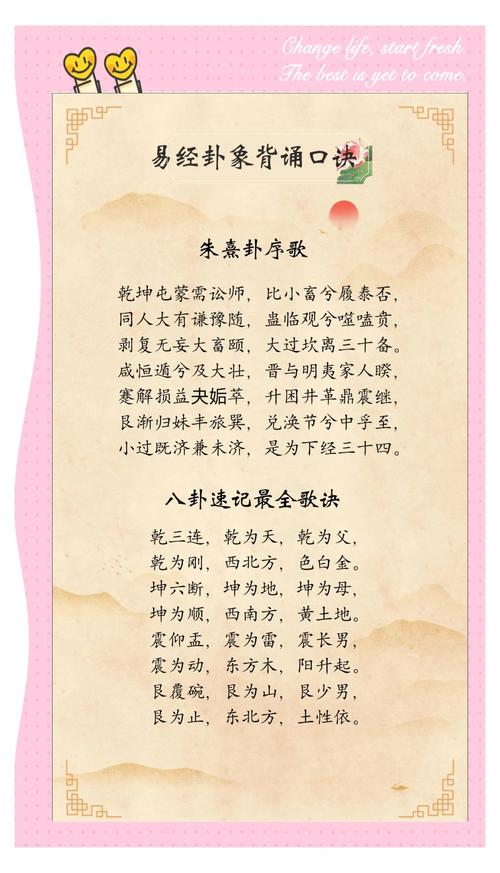 Change life, start fresh.
The best is yet to come.
易经卦象背诵口诀
朱熹卦序歌
乾坤屯蒙需讼师，比小畜兮履泰否，
同人大有谦豫随，蛊临观兮噬嗑贲，
剥复无妄大畜颐，大过坎离三十备。
咸恒遁兮及大壮，晋与明夷家人睽，
蹇解损益夬姤萃，升困井革鼎震继，
艮渐归妹丰旅巽，兑涣节兮中孚至，
小过既济兼未济，是为下经三十四。
八卦速记最全歌诀
乾三连，乾为天，乾为父，
乾为刚，西北方，色白金。
坤六断，坤为地，坤为母，
坤为顺，西南方，黄土地。
震仰盂，震为雷，震长男，
震为动，东方木，阳升起。
艮覆碗，艮为山，艮少男，
艮为止，东北方，土性依。